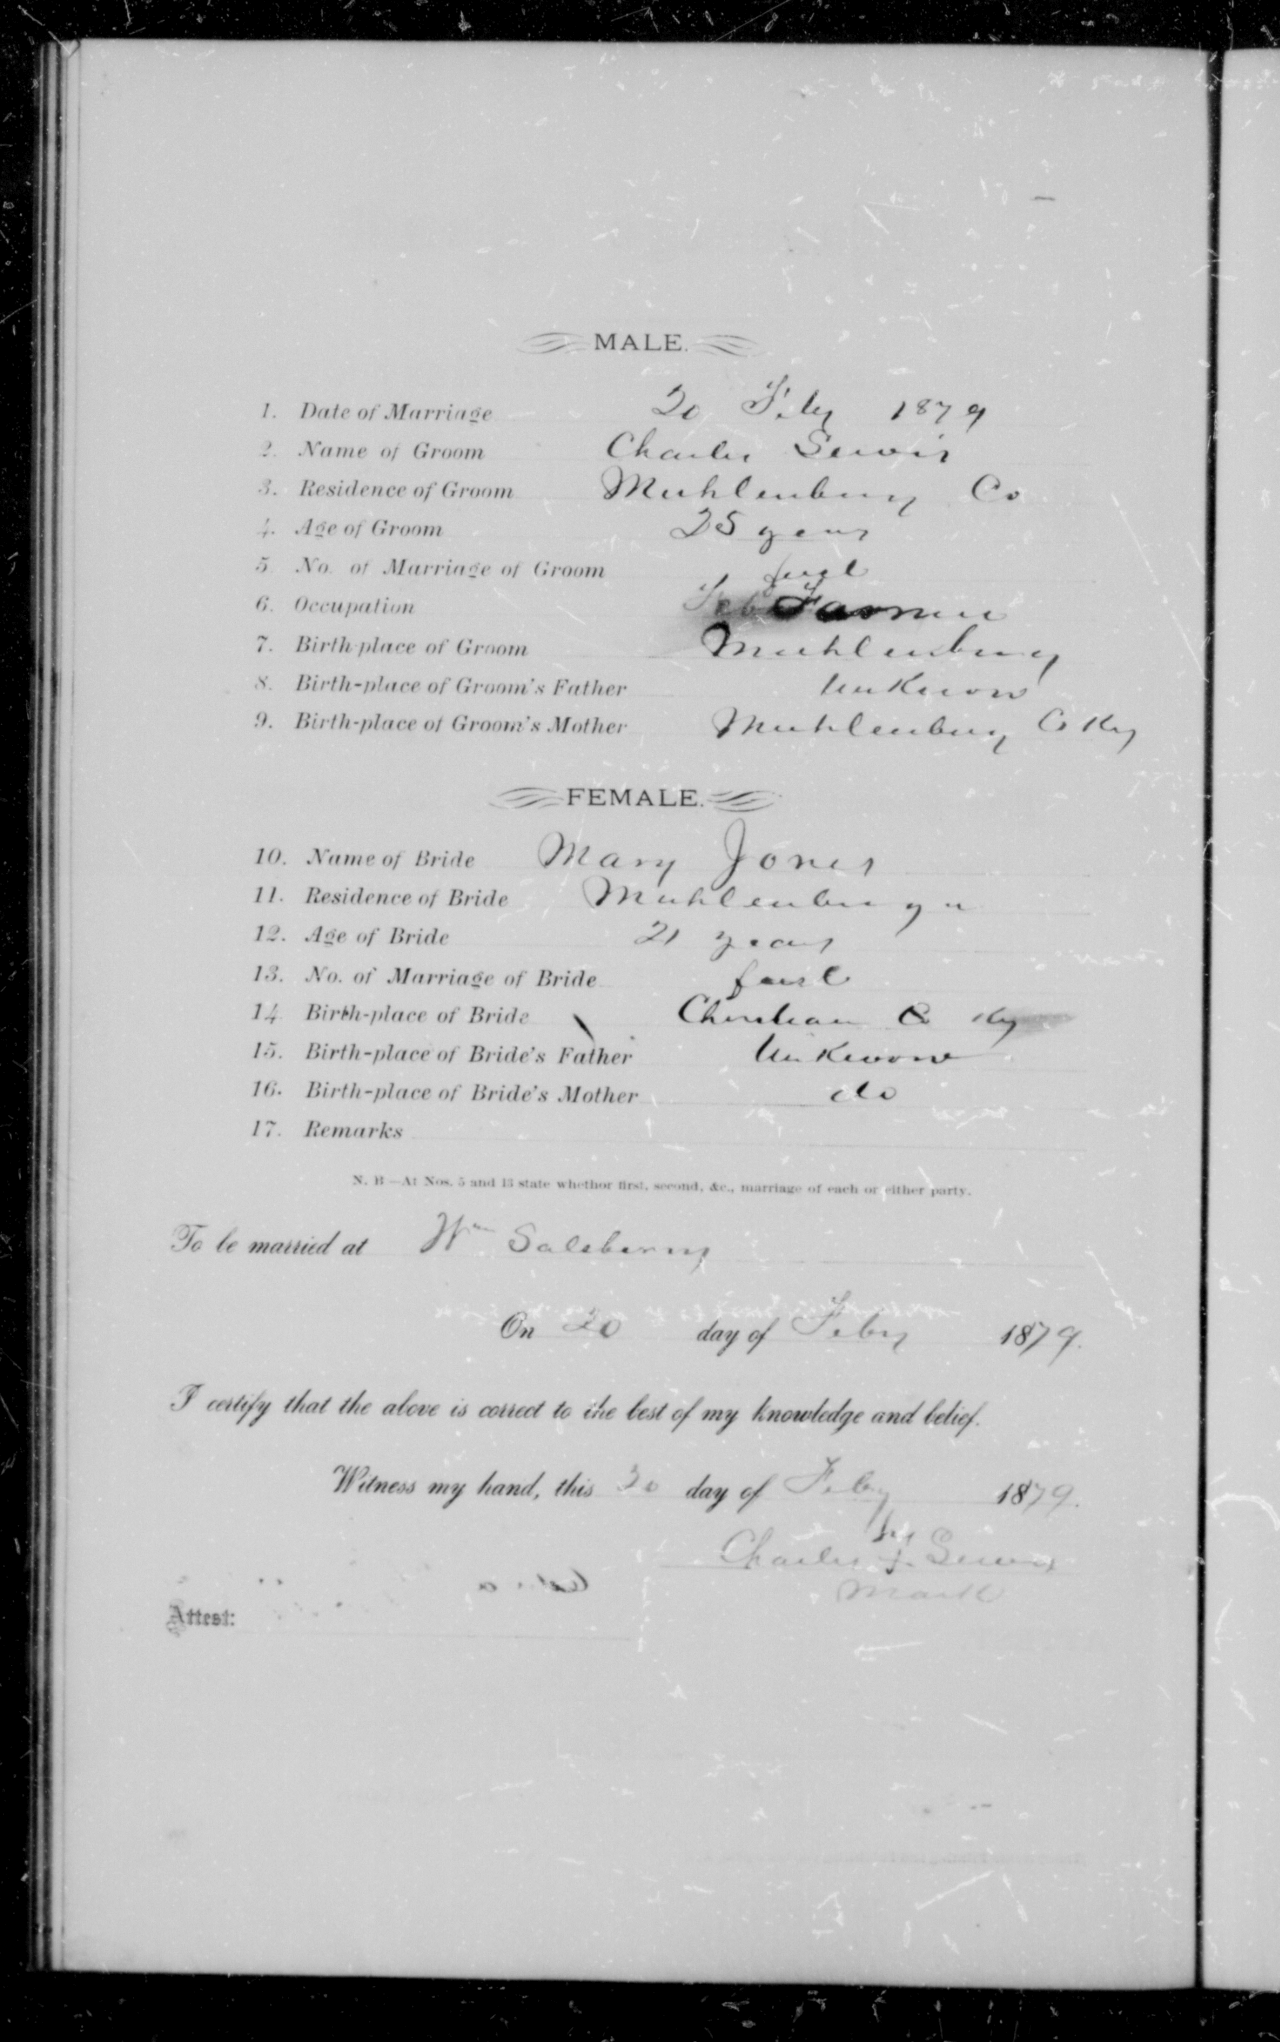 MALE.
1. Date of Marriage 20 Feby 1879
2. Name of Groom Charles Lewis
3. Residence of Groom Muhlenburg Co
4. Age of Groom 25 years
5 No. of Marriage of Groom first
6. Occupation Farmer
7. Birth-place of Groom Muhlenburg
8. Birth-place of Groom's Father Unknown
9. Birth-place of Groom's Mother Muhlenburg Co Ky
FEMALE.
10. Name of Bride Mary Jones
11. Residence of Bride Muhlenburg
12. Age of Bride 21 years
13. No. of Marriage of Bride first
14 Birth-place of Bride Christian Co Ky
15. Birth-place of Bride's Father Unknown
16. Birth-place of Bride's Mother do
17. Remarks
N. B—At Nos. 5 and 13 state whethor first, second, &c., marriage of each or either party.
To be married at Wm Salsberry
On 20 day of Feby 1879.
I certify that the above is correct to the best of my knowledge and belief.
Witness my hand, this 20 day of Feby 1879.
his
Charles X Lewis
mark
Attest: